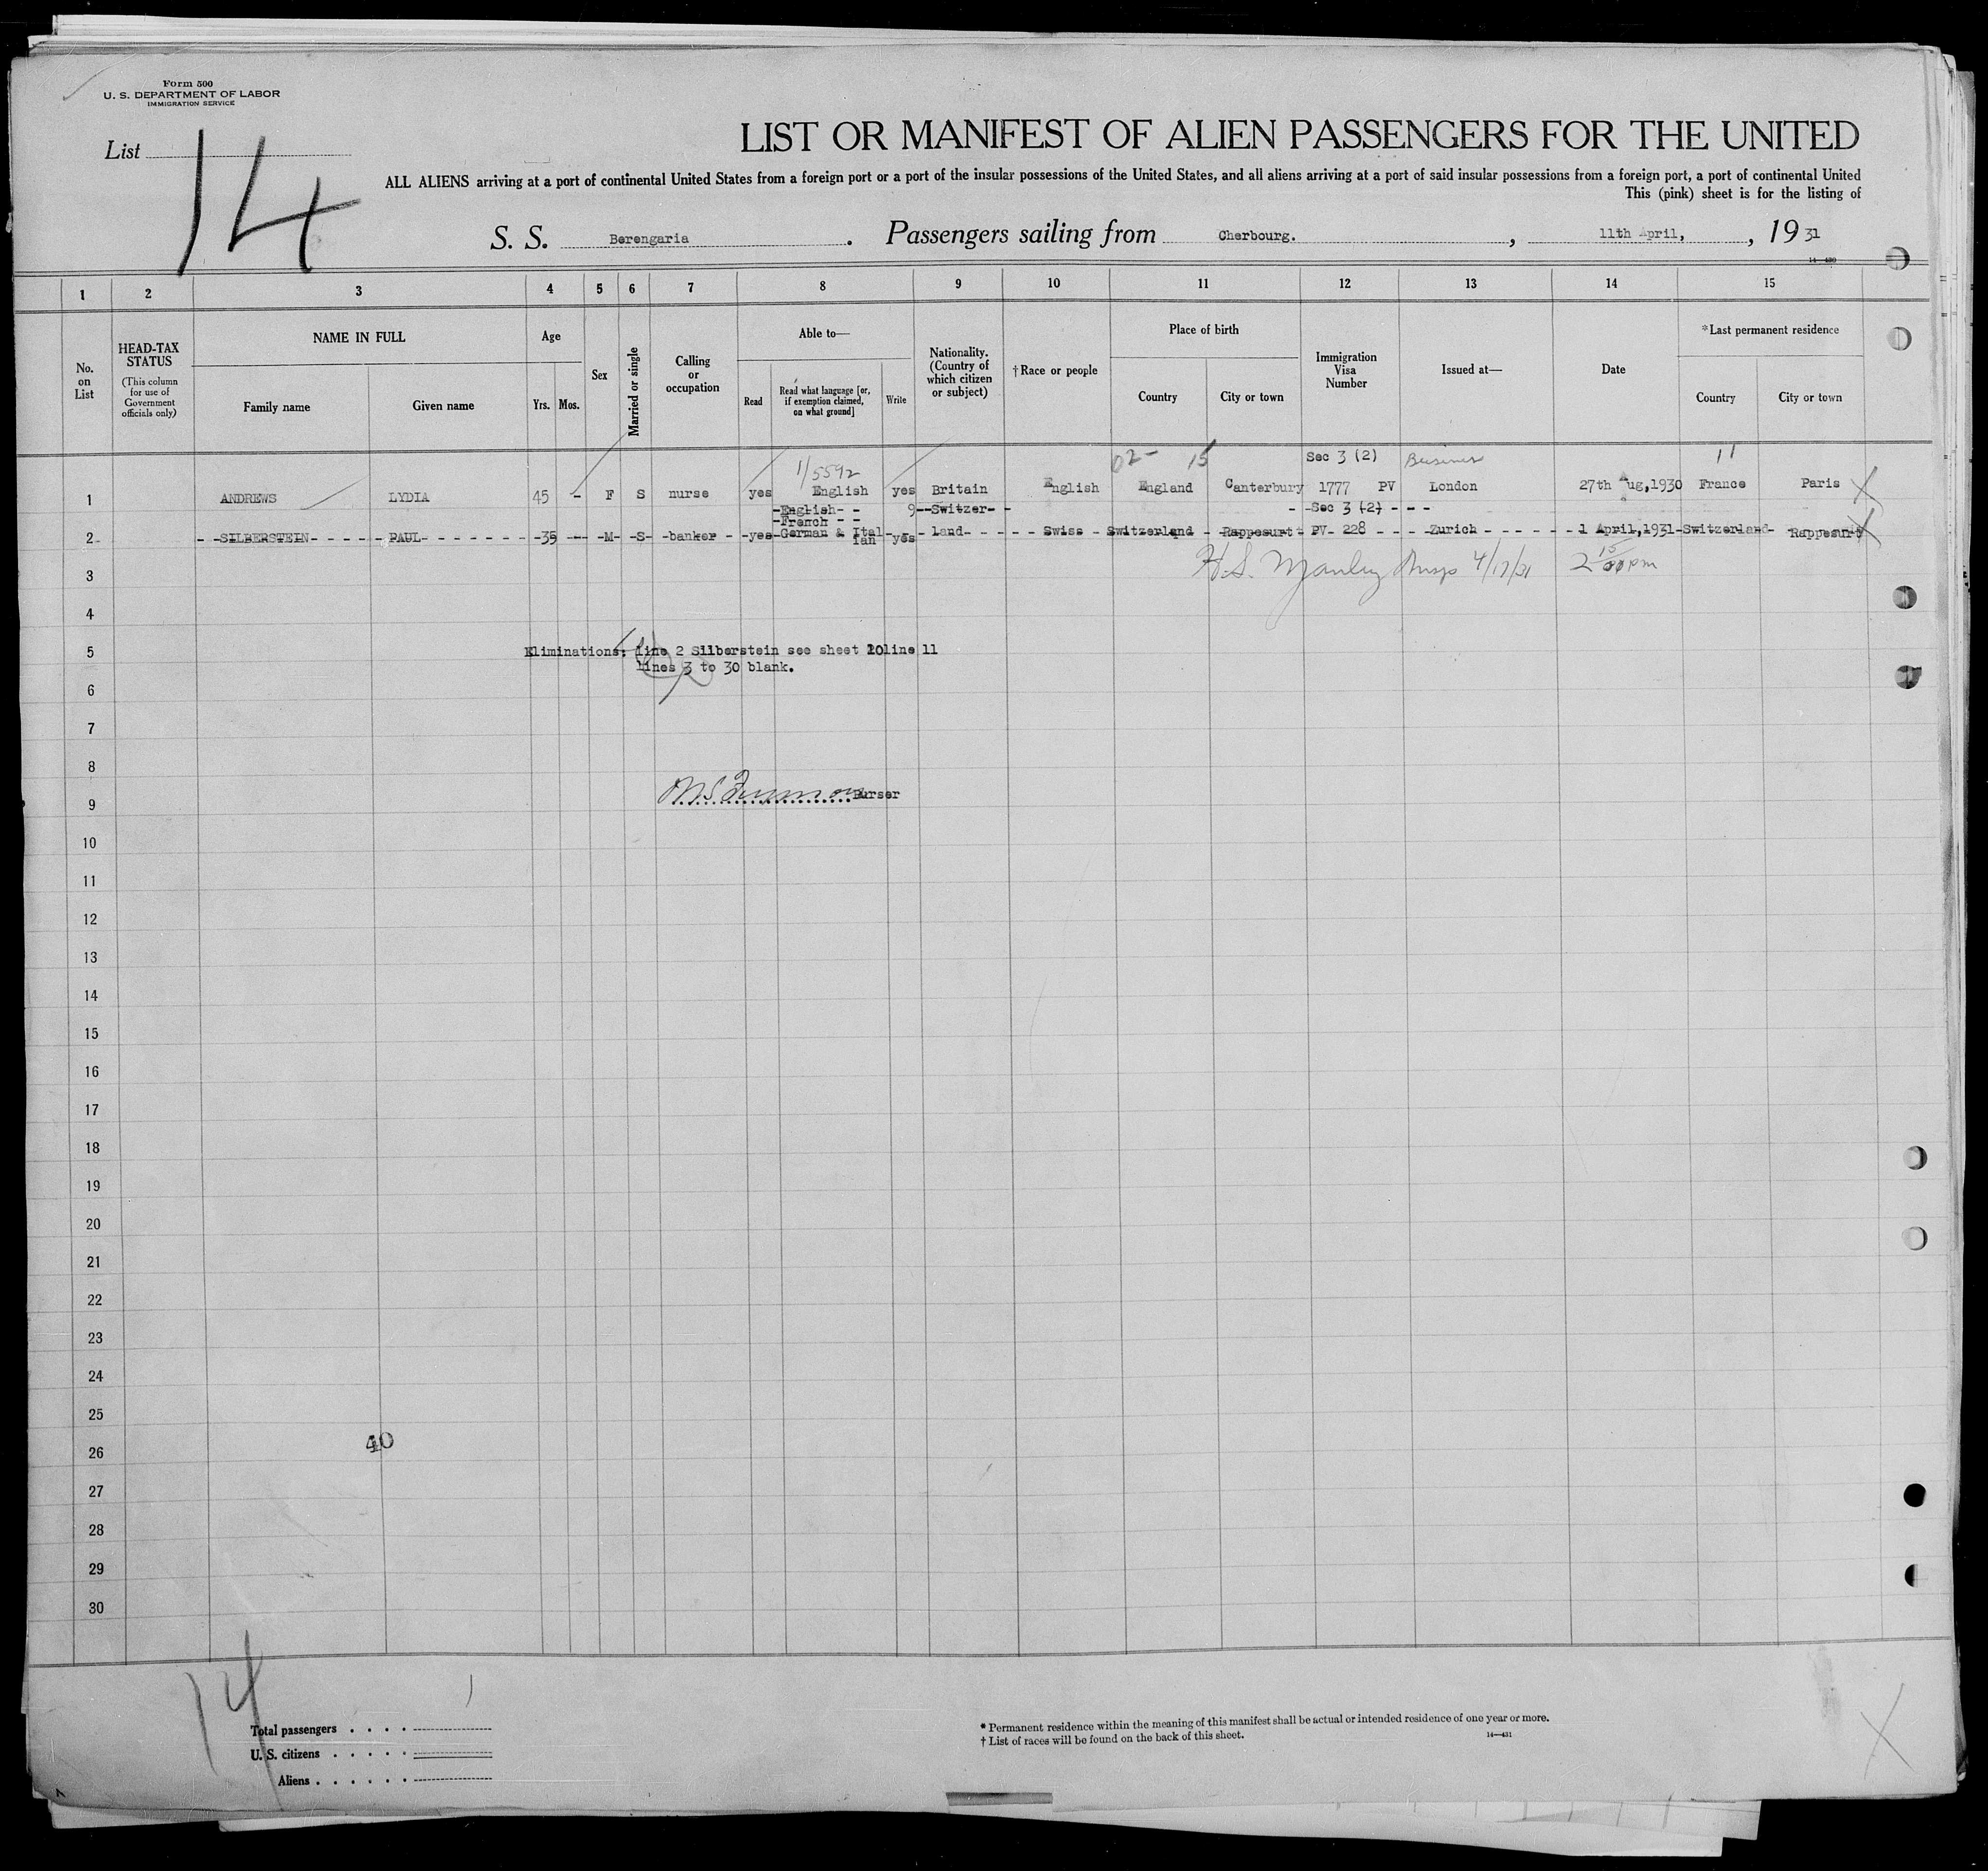 Form 500
U. S. DEPARTMENT OF LABOR
IMMIGRATION SERVICE
List 14
LIST OR MANIFEST OF ALIEN PASSENGERS FOR THE UNITED
ALL ALIENS arriving at a port of continental United States from a foreign port or a port of the insular possessions of the United States, and all aliens arriving at a port of said insular possessions from a foreign port, a port of continental United
This (pink) sheet is for the listing of
S. S. Berengaria. Passengers sailing from Cherbourg., 11th April, , 19 31
14—430
1 2 3 4 5 6 7 8 9 10 11 12 13 14 15
No. on List
HEAD-TAX STATUS
(This column for use of Government officials only)
NAME IN FULL
Family name Given name
Age
Yrs. Mos.
Sex
Married or single
Calling or occupation
Able to—
Read
Read what language [or, if exemption claimed, on what ground]
Write
Nationality. (Country of which citizen or subject)
†Race or people
Place of birth
Country City or town
Immigration Visa Number
Issued at—
Date
*Last permanent residence
Country City or town
1/5592 02- 15 Sec 3 (2) Business 11
1 ANDREWS LYDIA 45 - F S nurse yes English yes Britain English England Canterbury 1777 PV London 27th Aug,1930 France Paris X
-English- - 9--Switzer- - - -Sec 3 (2) - - -
-French - -
2 - -SILBERSTEIN- - - - - PAUL- - - - - - - -35 -- -M- -S- -banker - -yes-German & Ital ian -yes- land- - - - - Swiss - Switzerland - Rappesurt - PV- 228 - - - -Zurich - - - - - - -1 April,1931-Switzerland- Rappesurt X
3 H.S. Manley Insp 4/17/31 2 15 pm
4
5 Eliminations: line 2 Silberstein see sheet 10 line 11
lines 3 to 30 blank.
6
7
8
9 Purser
10
11
12
13
14
15
16
17
18
19
20
21
22
23
24
25
26 40
27
28
29
30
14
1
Total passengers . . . .
U. S. citizens . . . . .
Aliens . . . . . .
* Permanent residence within the meaning of this manifest shall be actual or intended residence of one year or more.
† List of races will be found on the back of this sheet.
14—431
X